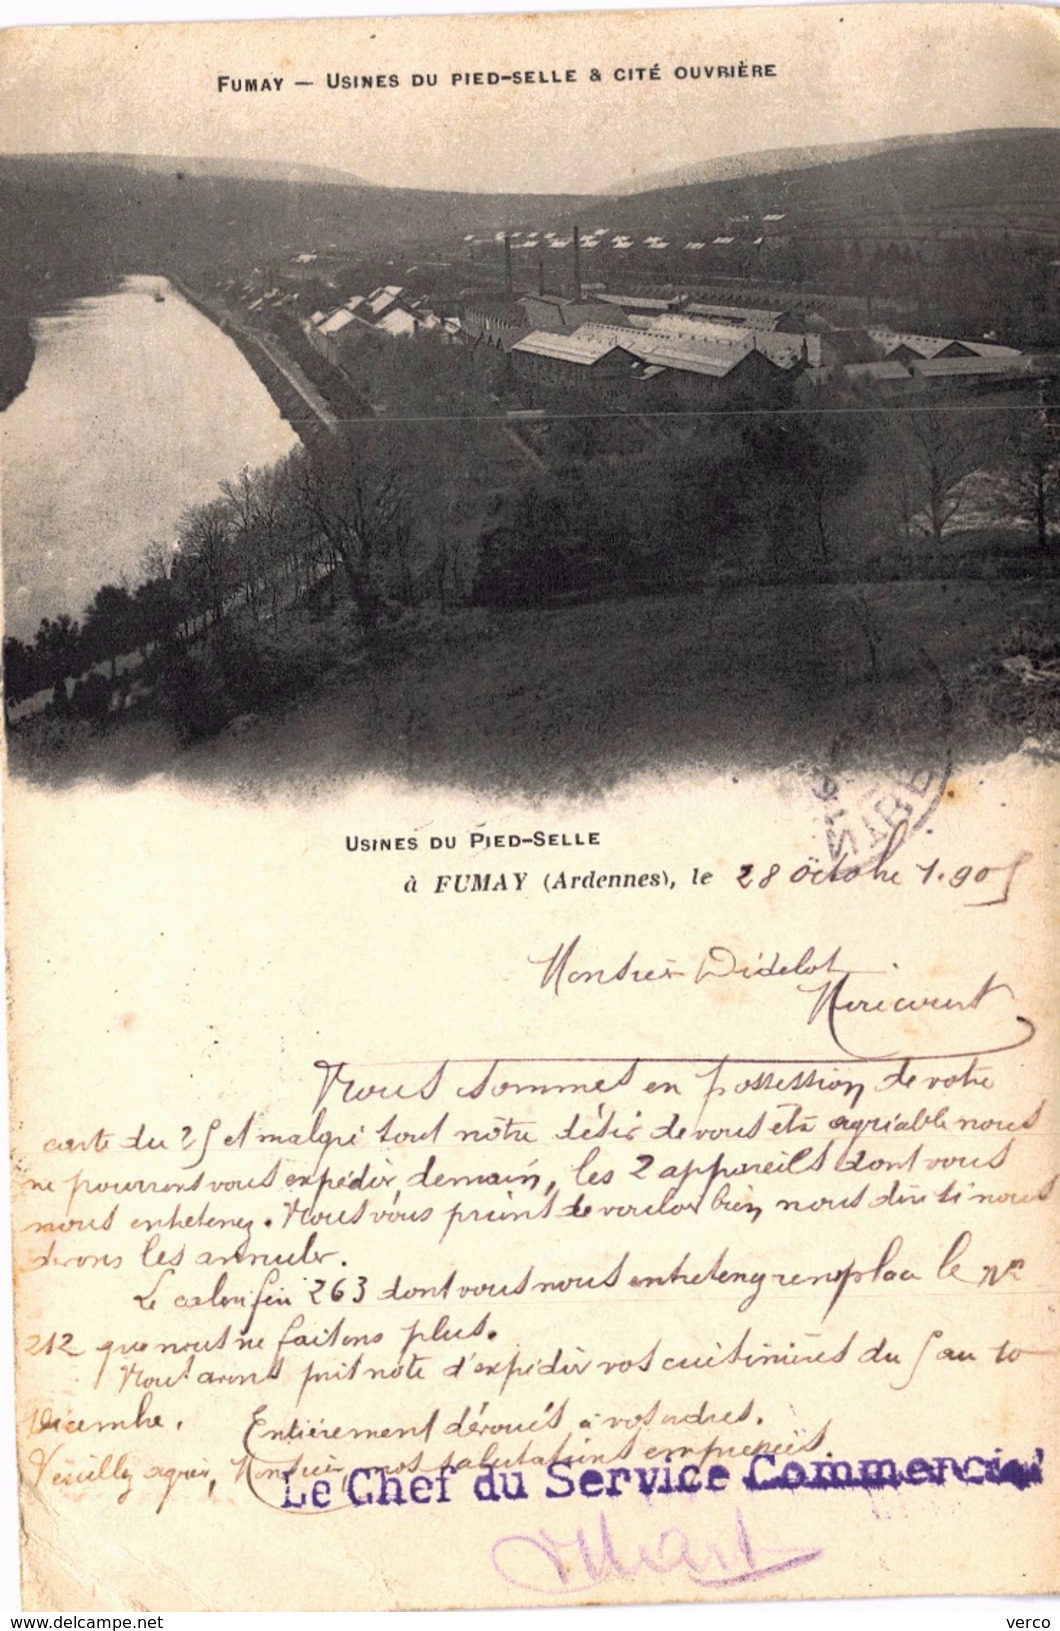 FUMAY — USINES DU PIED-SELLE & CITÉ OUVRIÈRE
USINES DU PIED-SELLE
à FUMAY (Ardennes), le 28 Octobre 1.905
Monsieur Didelot
Nous sommes en possession de votre
carte du 25 et malgré tout nôtre désir de vous être agréable nous
ne pourrons vous expédier demain, les 2 appareils dont vous
nous entretenez. Nous vous prions de vouloir bien nous dire si nous
devons les annuler.
Le calorifère 263 dont vous nous entretenez remplace le N°
212 que nous ne faisons plus.
Nous avons pris note d'expédier vos cuisinières du 5 au 10
Décembre. Entièrement dévoués à vos ordres.
Veuillez agréer, Monsieur, nos salutations empressées.
Le Chef du Service Commercial
delcampe.net
verco